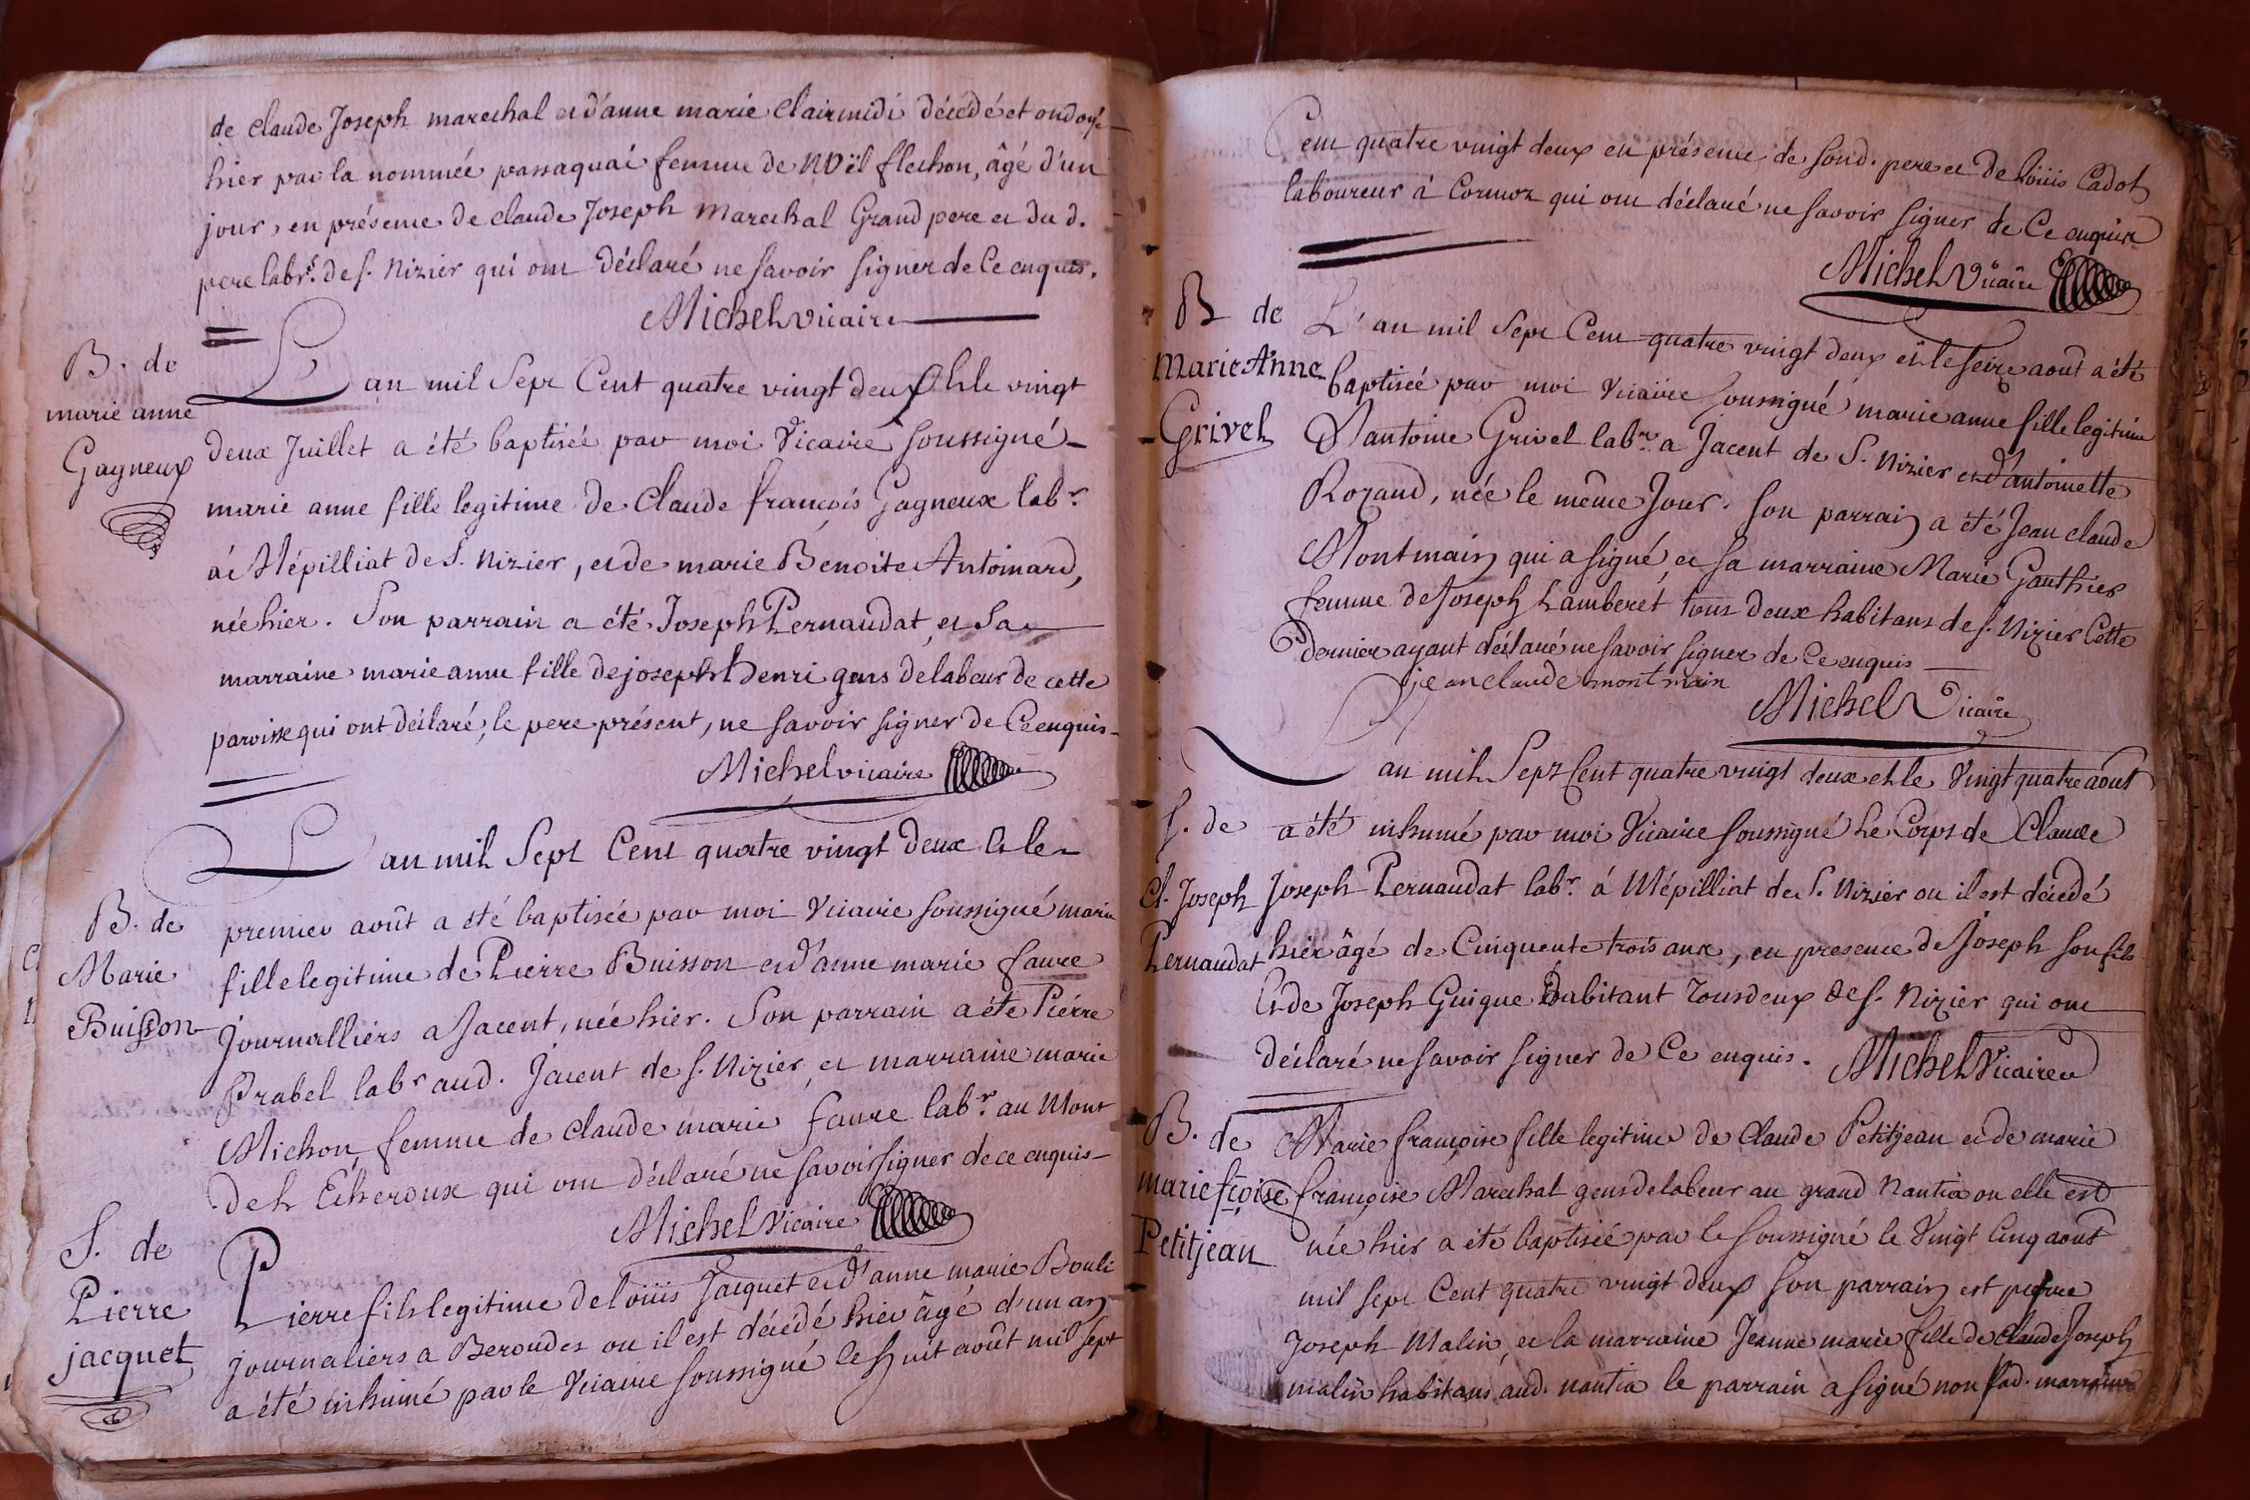 de claude Joseph marechal et d'anne marie Clairmidi décédé et ondoyé
hier par la nommée passaquai femme de Noël flechon, âgé d'un
jour, en présence de claude Joseph Marechal Grand pere et du d.
pere labr. de s. Nizier qui ont déclaré ne savoir signer de Ce enquis.
Michel vicaire
B. de
marie anne
Gagneux
L'an mil Sept Cent quatre vingt deux et le vingt
deux Juillet a été baptisée par moi Vicaire soussigné
marie anne fille legitime de Claude françois Gagneux labr.
à Mépilliat de S. Nizier, et de marie Benoite Antoinard,
née hier. Son parrain a été Joseph Pernaudat, et sa
marraine marie anne fille de joseph henri gens de labeur de cette
paroisse qui ont déclaré, le pere présent, ne savoir signer de Ce enquis
Michel vicaire
B. de
Marie
Buisson
L'an mil Sept Cent quatre vingt deux et le
premier août a été baptisée par moi Vicaire soussigné marie
fille legitime de Pierre Buisson et d'anne marie faure
Journalliers a Jacent, née hier. Son parrain a été Piérre
Prabel labr aud. Jacent de s. Nizier, et marraine marie
Michon femme de claude marie faure labr. au Mont
deh Echeroux qui ont déclaré ne savoir signer de ce enquis
Michel Vicaire
S. de
Pierre
jacquet
Pierre fils legitime de loüis Jacquet et d'anne marie Bouli
journaliers a Beroudes ou il est décédé hier âgé d'un an
a été inhumé par le Vicaire soussigné le huit août mil sept
Cent quatre vingt deux en présence de sond. pere et de loüis Cadot
laboureur à Cormoz qui ont déclaré ne savoir signer de Ce enquis
Michel Vicaire
B de
Marie Anne
Grivel
L'an mil Sept Cent quatre vingt deux et le seize aout a été
baptisée par moi Vicaire soussigné marie anne fille legitime
D'antoine Grivel labr. a Jacent de S. Nizier et d'antoinette
Rozand, née le même Jour. son parrain a été Jean claude
Montmain qui a signé, et sa marraine Marie Gauthier
femme de Joseph Lamberet tous deux habitans de s. Nizier Cette
Derniere ayant déclaré ne savoir signer de Ce enquis
jean claude montmain
Michel Vicaire
S. de
Cl. Joseph
Pernaudat
L'an mil Sept Cent quatre vingt deux et le Vingt quatre aout
a été inhumé par moi Vicaire soussigné Le Corps de Claude
Joseph Pernaudat labr. á Mépilliat de S. Nizier ou il est décédé
hier âgé de Cinquente trois ans, en presence de Joseph son fils
et de Joseph Guigue habitant tous deux de s. Nizier qui ont
déclaré ne savoir signer de Ce enquis.
Michel Vicaire
B. de
marie fçoise
Petitjean
Marie françoise fille legitime de Claude Petitjean et de marie
françoise Marechal gens de labeur au grand Nantia ou elle est
née hier a été baptisée par le soussigné le Vingt Cinq aout
mil sept Cent quatre vingt deux son parrain est pierre
Joseph Malin, et la marraine Jeanne marie fille de Claude Joseph
malin habitans aud. nantia le parrain a signé non sad. marraine